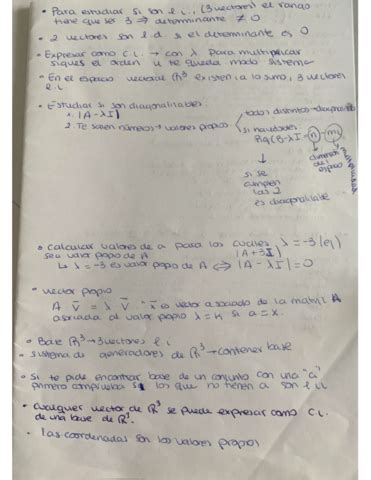 • Para estudiar si son l.i... (3 vectores) el rango
tiene que ser 3 ⇒ determinante ≠ 0
• 2 vectores son l.d si el determinante es 0
• Expresar como c.l. → con λ para multiplicar
sigues el orden y te queda modo sistema
• En el espacio vectorial ℝ³ existen, a lo sumo, 3 vectores
l.i
• Estudiar si son diagonalizables:
1. |A - λI|
2. Te salen números → valores propios
todos distintos → diagonalizable
si
Rg(B-λI) = n - m
dimensión del espacio
multiplicidad
si se
cumplen
las 2
es diagonalizable
• Calcular valores de a para los cuales λ = -3
sea valor propio de A |A+3I|
λ = -3 es valor propio de A ⇔ |A - λI| = 0
• vector propio
A v̄ = λ v̄ x̄ es vector asociado de la matriz A
asociada al valor propio λ = k si a = x.
• Base ℝ³ → 3 vectores l.i
• sistema de generadores de ℝ³ → contener base
• Si te pide encontrar base de un conjunto con una "a"
primero comprueba si los que no tienen a son l.i
• Cualquier vector de ℝ³ se puede expresar como c.l.
de una base de ℝ³.
• las coordenadas son los valores propios